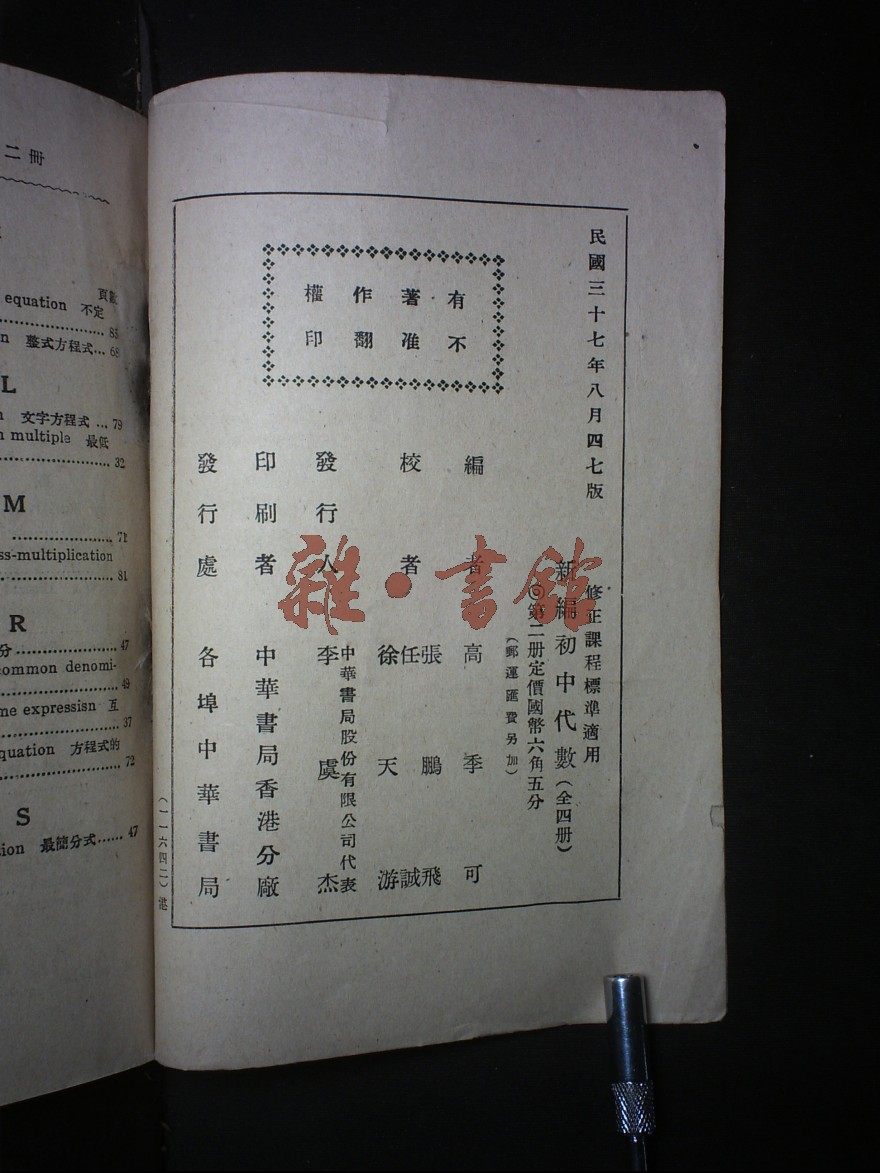 二冊
頁數
equation 不定
85
n 整式方程式… 68
L
n 文字方程式 … 79
n multiple 最低
32
M
71
ss-multiplication
81
R
分 47
common denomi-
49
me expressisn 互
37
quation 方程式的
72
S
tion 最簡分式…… 47
民國三十七年八月四七版
有著作權
不准翻印
修正課程標準適用
新編初中代數(全四册)
◎第二册定價國幣六角五分
(郵運匯費另加)
編者 高季可
校者 張鵬飛
任誠
徐天游
發行人 中華書局股份有限公司代表
李虞杰
印刷者 中華書局香港分廠
發行處 各埠中華書局
(一一六四二)港
雜·書館